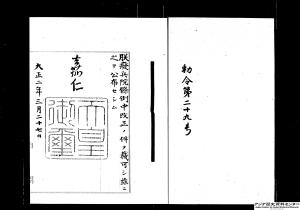 勅令第二十九号
朕癈兵院條例中改正ノ件ヲ裁可シ茲ニ
之ヲ公布セシム
嘉仁
天皇
御璽
大正二年三月二十七日
アジア歴史資料センター